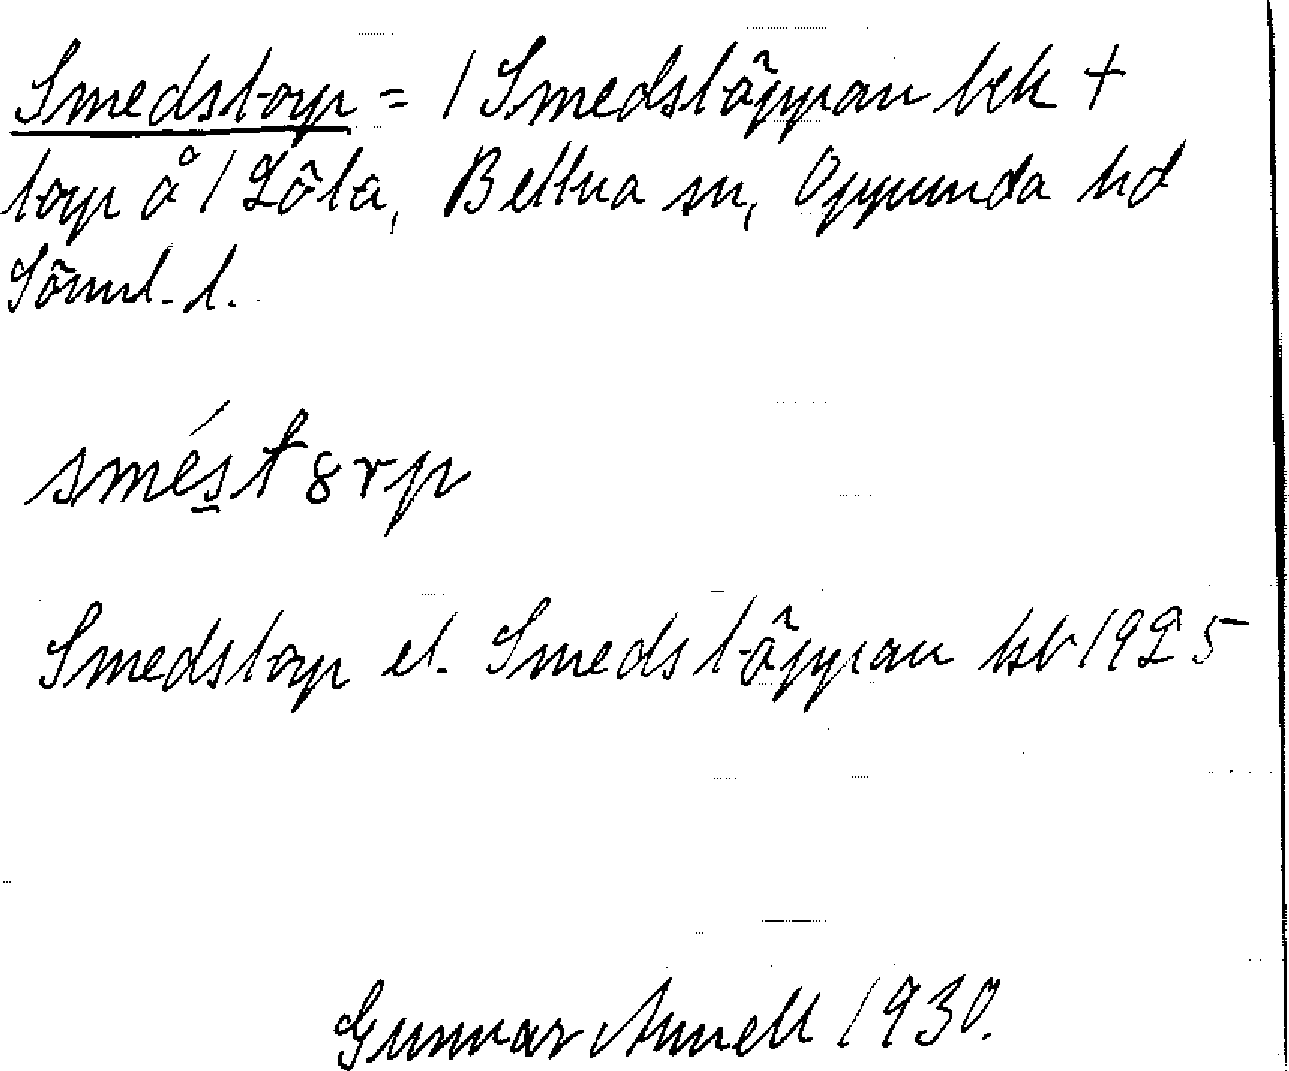 Smedstorp = / Smedstäppan kek +
torp å / Löta, Bettna sn, Oppunda hd
Sörml. l.
smés̲tȣrp
Smedstorp el. Smedstäppan kb 1925
Gunnar Annell 1930.